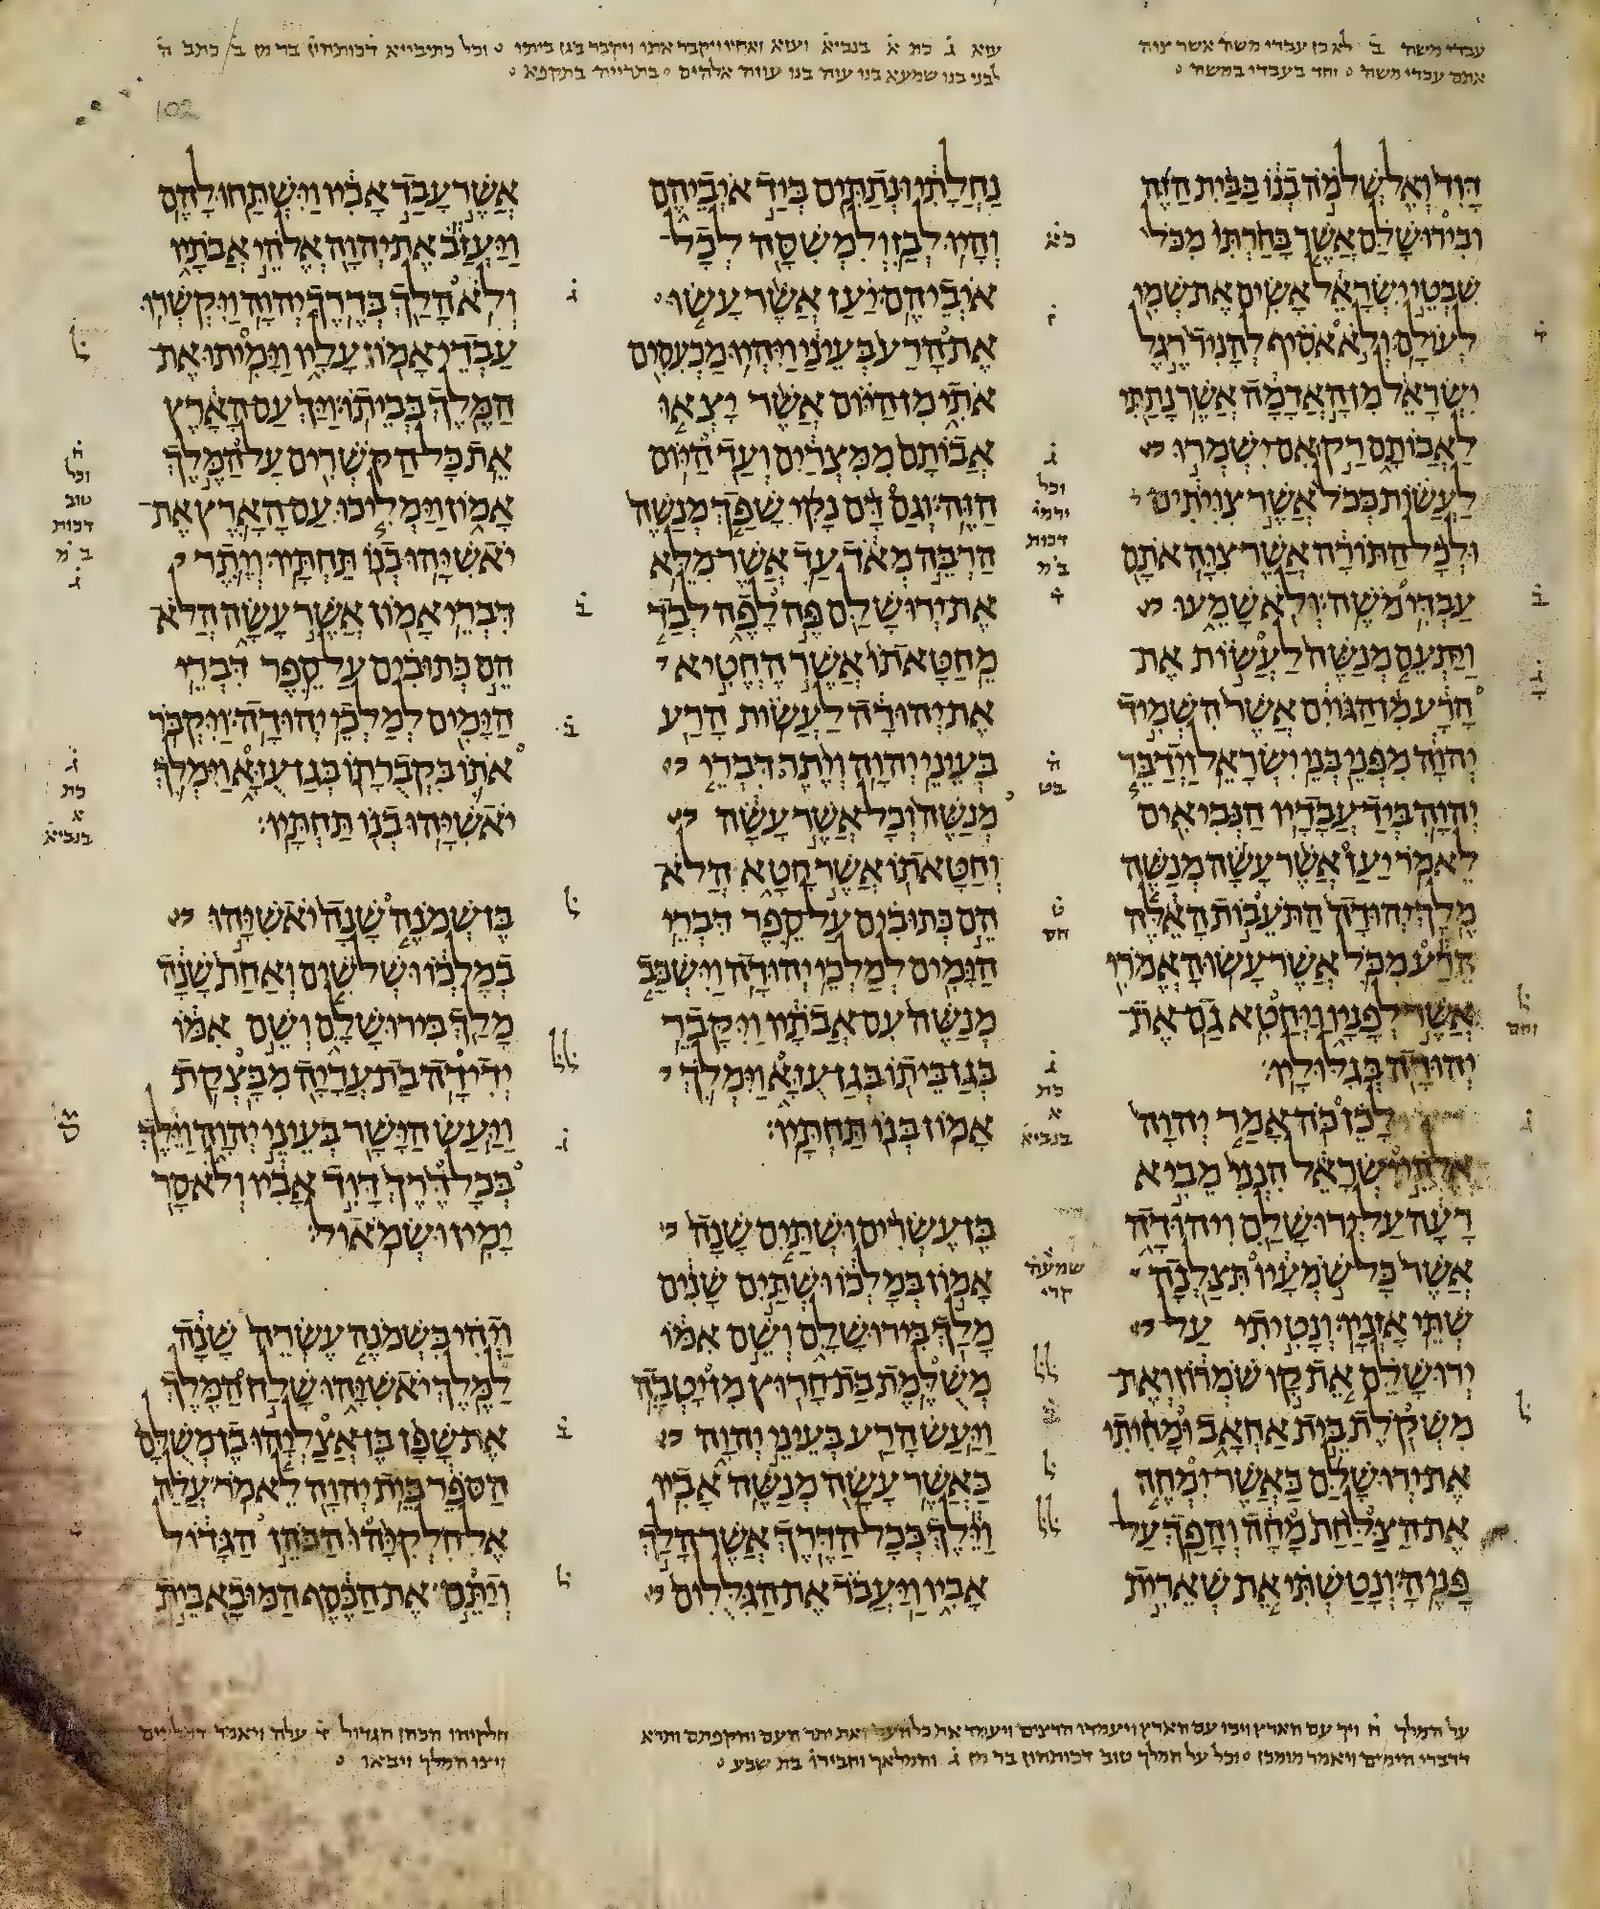 עבדי משה ב לא כן עבדי משה אשר צוה
אתם עבדי משה וחד בעבדי במשה
עזא ג כת א בנביא ועזא ואחיו ויקבר אתו ויקבר בגן ביתו וכל כתיבייא דכותהון בר מן ב כתב ה
לבני בנו שמעא בנו עוזה בנו
102
דָּוִד וְאֶל שְׁלֹמֹה בְנוֹ בַּבַּיִת הַזֶּה
וּבִירוּשָׁלִַם אֲשֶׁר בָּחַרְתִּי מִכֹּל
שִׁבְטֵי יִשְׂרָאֵל אָשִׂים אֶת שְׁמִי
לְעוֹלָם וְלֹא אֹסִיף לְהָנִיד רֶגֶל
יִשְׂרָאֵל מִן הָאֲדָמָה אֲשֶׁר נָתַתִּי
לַאֲבוֹתָם רַק אִם יִשְׁמְרוּ
לַעֲשׂוֹת כְּכֹל אֲשֶׁר צִוִּיתִים
וּלְכָל הַתּוֹרָה אֲשֶׁר צִוָּה אֹתָם
עַבְדִּי מֹשֶׁה וְלֹא שָׁמֵעוּ
וַיַּתְעֵם מְנַשֶּׁה לַעֲשׂוֹת אֶת
הָרָע מִן הַגּוֹיִם אֲשֶׁר הִשְׁמִיד
יְהוָה מִפְּנֵי בְּנֵי יִשְׂרָאֵל וַיְדַבֵּר
יְהוָה בְּיַד עֲבָדָיו הַנְּבִיאִים
לֵאמֹר יַעַן אֲשֶׁר עָשָׂה מְנַשֶּׁה
מֶלֶךְ יְהוּדָה הַתֹּעֵבוֹת הָאֵלֶּה
הֵרַע מִכֹּל אֲשֶׁר עָשׂוּ הָאֱמֹרִי
אֲשֶׁר לְפָנָיו וַיַּחֲטִא גַם אֶת
יְהוּדָה בְּגִלּוּלָיו
לָכֵן כֹּה אָמַר יְהוָה
אֱלֹהֵי יִשְׂרָאֵל הִנְנִי מֵבִיא
רָעָה עַל יְרוּשָׁלִַם וִיהוּדָה
אֲשֶׁר כָּל שֹׁמְעָיו תִּצַּלְנָה
שְׁתֵּי אָזְנָיו וְנָטִיתִי עַל
יְרוּשָׁלִַם אֵת קָו שֹׁמְרוֹן וְאֶת
מִשְׁקֹלֶת בֵּית אַחְאָב וּמָחִיתִי
אֶת יְרוּשָׁלִַם כַּאֲשֶׁר יִמְחֶה
אֶת הַצַּלַּחַת מָחָה וְהָפַךְ עַל
פָּנֶיהָ וְנָטַשְׁתִּי אֵת שְׁאֵרִית
נַחֲלָתִי וּנְתַתִּים בְּיַד אֹיְבֵיהֶם
וְהָיוּ לְבַז וְלִמְשִׁסָּה לְכָל
אֹיְבֵיהֶם יַעַן אֲשֶׁר עָשׂוּ
אֶת הָרַע בְּעֵינַי וַיִּהְיוּ מַכְעִסִים
אֹתִי מִן הַיּוֹם אֲשֶׁר יָצְאוּ
אֲבוֹתָם מִמִּצְרַיִם וְעַד הַיּוֹם
הַזֶּה וְגַם דָּם נָקִי שָׁפַךְ מְנַשֶּׁה
הַרְבֵּה מְאֹד עַד אֲשֶׁר מִלֵּא
אֶת יְרוּשָׁלִַם פֶּה לָפֶה לְבַד
מֵחַטָּאתוֹ אֲשֶׁר הֶחֱטִיא
אֶת יְהוּדָה לַעֲשׂוֹת הָרַע
בְּעֵינֵי יְהוָה וְיֶתֶר דִּבְרֵי
מְנַשֶּׁה וְכָל אֲשֶׁר עָשָׂה
וְחַטָּאתוֹ אֲשֶׁר חָטָא הֲלֹא
הֵם כְּתוּבִים עַל סֵפֶר דִּבְרֵי
הַיָּמִים לְמַלְכֵי יְהוּדָה וַיִּשְׁכַּב
מְנַשֶּׁה עִם אֲבֹתָיו וַיִּקָּבֵר
בְּגַן בֵּיתוֹ בְּגַן עֻזָּא וַיִּמְלֹךְ
אָמוֹן בְּנוֹ תַּחְתָּיו
בֶּן עֶשְׂרִים וּשְׁתַּיִם שָׁנָה
אָמוֹן בְּמָלְכוֹ וּשְׁתַּיִם שָׁנִים
מָלַךְ בִּירוּשָׁלִָם וְשֵׁם אִמּוֹ
מְשֻׁלֶּמֶת בַּת חָרוּץ מִן יָטְבָה
וַיַּעַשׂ הָרַע בְּעֵינֵי יְהוָה
כַּאֲשֶׁר עָשָׂה מְנַשֶּׁה אָבִיו
וַיֵּלֶךְ בְּכָל הַדֶּרֶךְ אֲשֶׁר הָלַךְ
אָבִיו וַיַּעֲבֹד אֶת הַגִּלֻּלִים
אֲשֶׁר עָבַד אָבִיו וַיִּשְׁתַּחוּ לָהֶם
וַיַּעֲזֹב אֶת יְהוָה אֱלֹהֵי אֲבֹתָיו
וְלֹא הָלַךְ בְּדֶרֶךְ יְהוָה וַיִּקְשְׁרוּ
עַבְדֵי אָמוֹן עָלָיו וַיָּמִיתוּ אֶת
הַמֶּלֶךְ בְּבֵיתוֹ וַיַּךְ עַם הָאָרֶץ
אֵת כָּל הַקֹּשְׁרִים עַל הַמֶּלֶךְ
אָמוֹן וַיַּמְלִיכוּ עַם הָאָרֶץ אֶת
יֹאשִׁיָּהוּ בְנוֹ תַּחְתָּיו וְיֶתֶר
דִּבְרֵי אָמוֹן אֲשֶׁר עָשָׂה הֲלֹא
הֵם כְּתוּבִים עַל סֵפֶר דִּבְרֵי
הַיָּמִים לְמַלְכֵי יְהוּדָה וַיִּקְבֹּר
אֹתוֹ בִּקְבֻרָתוֹ בְּגַן עֻזָּא וַיִּמְלֹךְ
יֹאשִׁיָּהוּ בְנוֹ תַּחְתָּיו
בֶּן שְׁמֹנֶה שָׁנָה יֹאשִׁיָּהוּ
בְמָלְכוֹ וּשְׁלֹשִׁים וְאַחַת שָׁנָה
מָלַךְ בִּירוּשָׁלִָם וְשֵׁם אִמּוֹ
יְדִידָה בַת עֲדָיָה מִבָּצְקַת
וַיַּעַשׂ הַיָּשָׁר בְּעֵינֵי יְהוָה וַיֵּלֶךְ
בְּכָל דֶּרֶךְ דָּוִד אָבִיו וְלֹא סָר
יָמִין וּשְׂמֹאול
וַיְהִי בִּשְׁמֹנֶה עֶשְׂרֵה שָׁנָה
לַמֶּלֶךְ יֹאשִׁיָּהוּ שָׁלַח הַמֶּלֶךְ
אֶת שָׁפָן בֶּן אֲצַלְיָהוּ בֶן מְשֻׁלָּם
הַסֹּפֵר בֵּית יְהוָה לֵאמֹר עֲלֵה
אֶל חִלְקִיָּהוּ הַכֹּהֵן הַגָּדוֹל
וְיַתֵּם אֶת הַכֶּסֶף הַמּוּבָא בֵּית
על המלך ח ויך עם הארץ ויבו עם הארץ
דדברי הימים ויאמר ממכן וכל על המלך טוב דכותהון בר מן ג והמלאך וחבירו בת שבע
חלקיהו הכהן הגדול ד עלה ויאמר
ויצו המלך ויבאו